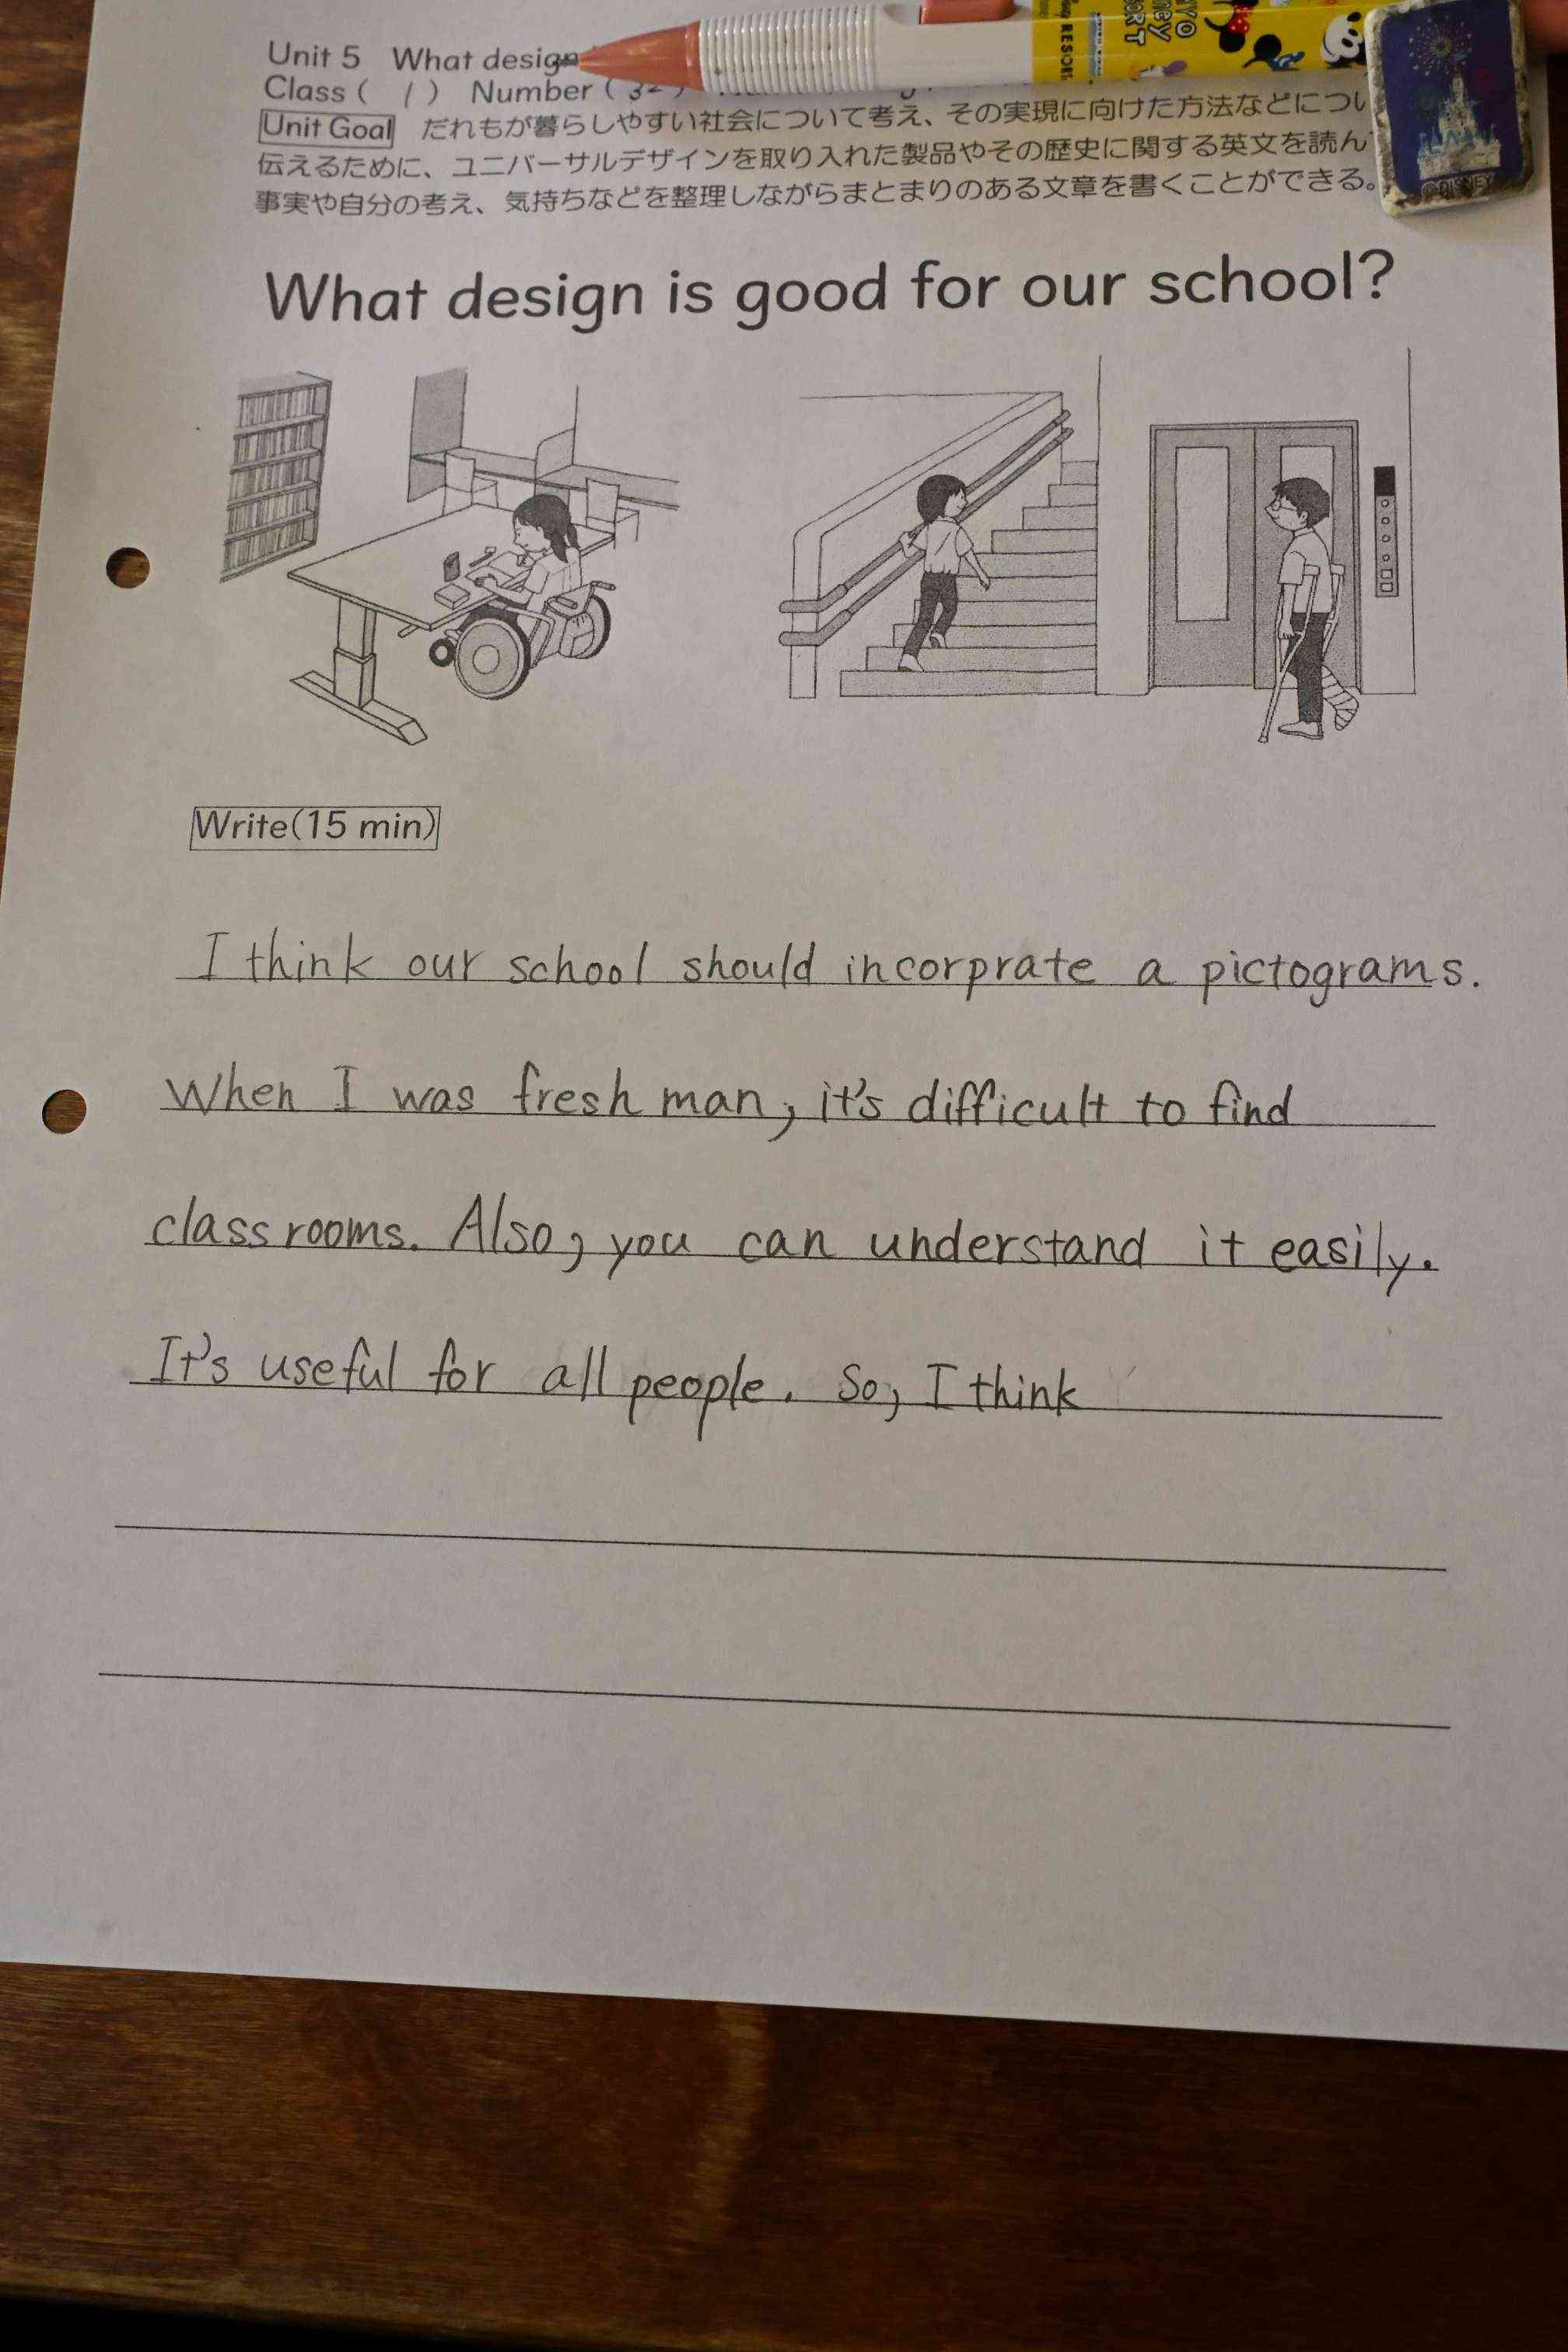 Unit 5 What design
Class ( 1 ) Number ( 32 )
Unit Goal だれもが暮らしやすい社会について考え、その実現に向けた方法などについ
伝えるために、ユニバーサルデザインを取り入れた製品やその歴史に関する英文を読ん
事実や自分の考え、気持ちなどを整理しながらまとまりのある文章を書くことができる。
RESORT
©DISNEY
What design is good for our school?
Write(15 min)
I think our school should incorprate a pictograms.
When I was fresh man, it's difficult to find
classrooms. Also, you can understand it easily.
It's useful for all people. So, I think